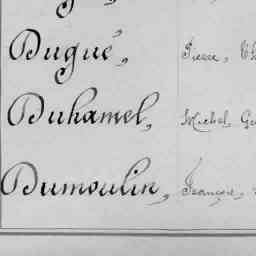 Dugué, Pierre,
Duhamel, Michel
Dumoulin, François,